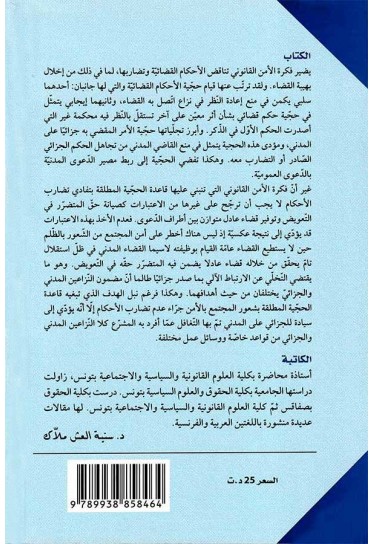 الكتاب
يضير فكرة الأمن القانوني تناقض الأحكام القضائيّة وتضاربها، لما في ذلك من إخلال
بهيبة القضاء. ولقد ترتّب عنها قيام حجّية الأحكام القضائيّة والتي لها جانبان: أحدهما
سلبي يكمن في منع إعادة النّظر في نزاع اتّصل به القضاء، وثانيهما إيجابي يتمثّل
في حجية حكم قضائي بشأن أثر معيّن على آخر تستقلّ بالنّظر فيه محكمة غير التي
أصدرت الحكم الأوّل في الذّكر. وأبرز تجلّياتها حجّية الأمر المقضي به جزائيّا على
المدني، ومؤدى هذه الحجية يتمثّل في منع القاضي المدني من تجاهل الحكم الجزائي
الصّادر أو التضارب معه. وهكذا تفضي الحجّية إلى ربط مصير الدّعوى المدنيّة
بالدّعوى العموميّة.
غير أنّ فكرة الأمن القانوني التي تنبني عليها قاعدة الحجّية المطلقة بتفادي تضارب
الأحكام لا يجب أن ترجّح على غيرها من الاعتبارات كصيانة حقّ المتضرّر في
التّعويض وتوفير قضاء عادل متوازن بين أطراف الدّعوى. فعدم الأخذ بهذه الاعتبارات
قد يؤدّي إلى نتيجة عكسيّة إذ ليس هناك أخطر على أمن المجتمع من الشّعور بالظّلم
حين لا يستطيع القضاء عامّة القيام بوظيفته لاسيما القضاء المدني في ظلّ استقلال
تامّ يحقّق من خلاله قضاء عادلا يضمن فيه المتضرّر حقّه في التّعويض. وهو ما
يقتضي التّخلّي عن الارتباط الآلي بما صدر جزائيّا طالما أنّ مضمون النّزاعين المدني
والجزائي يختلفان من حيث أهدافهما. وهكذا فرغم نبل الهدف الذي تبغيه قاعدة
الحجّية المطلقة بشعور المجتمع بالأمن جرّاء عدم تضارب الأحكام إلّا أنّه يؤدّي إلى
سيادة للجزائي على المدني ثمّ بها التغافل عمّا أفرد به المشرّع كلا النّزاعين المدني
والجزائي من قواعد خاصّة ووسائل عمل مختلفة.
الكاتبة
أستاذة محاضرة بكلية العلوم القانونية والسياسية والاجتماعية بتونس، زاولت
دراستها الجامعية بكلية الحقوق والعلوم السياسية بتونس. درست بكلية الحقوق
بصفاقس ثمّ كلية العلوم القانونية والسياسية والاجتماعية بتونس. لها مقالات
عديدة منشورة باللغتين العربية والفرنسية.
د. سنية العش ملاّك
السعر 25 د.ت
9 789938 858464